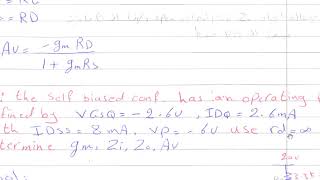 = RD
Av = -gm RD
1 + gm Rs
: the self biased conf. has an operating
fined by VGSQ = -2.6V, IDQ = 2.6mA
th IDSS = 8mA, Vp = -6V use rd = ∞
termine gm, Zi, Zo, Av
20V
3.3K